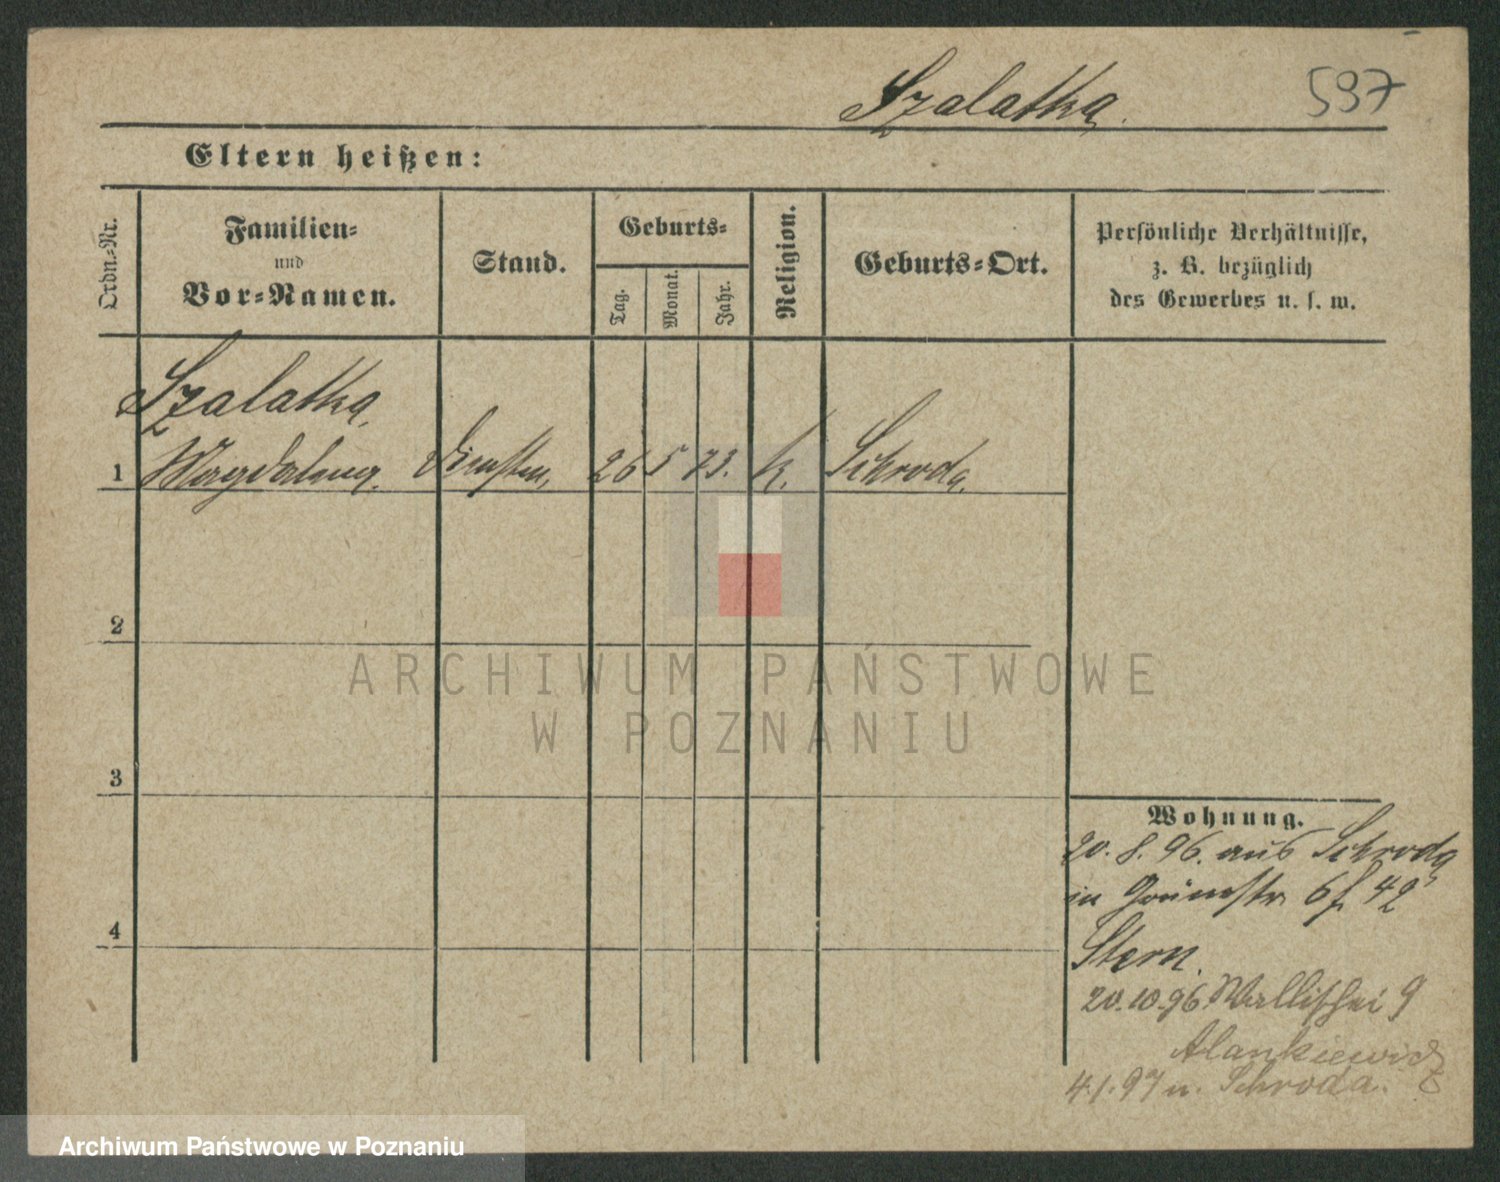 Szalatka. 597
Eltern heißen:
Ordn.-Nr.
Familien-
und
Vor-Namen.
Stand.
Geburts-
Tag.
Monat.
Jahr.
Religion.
Geburts-Ort.
Persönliche Verhältnisse,
z. B. bezüglich
des Gewerbes u. s. w.
Szalatka,
1 Magdalena. 26 5 73. k. Schroda.
2
3
4
Wohnung.
20. 8. 96. aus Schroda
in Grünestr. 42
Stern.
20.10.96 Wallischei 9
Alankiewicz
4.1.97 n. Schroda.
ARCHIWUM PAŃSTWOWE
W POZNANIU
Archiwum Państwowe w Poznaniu